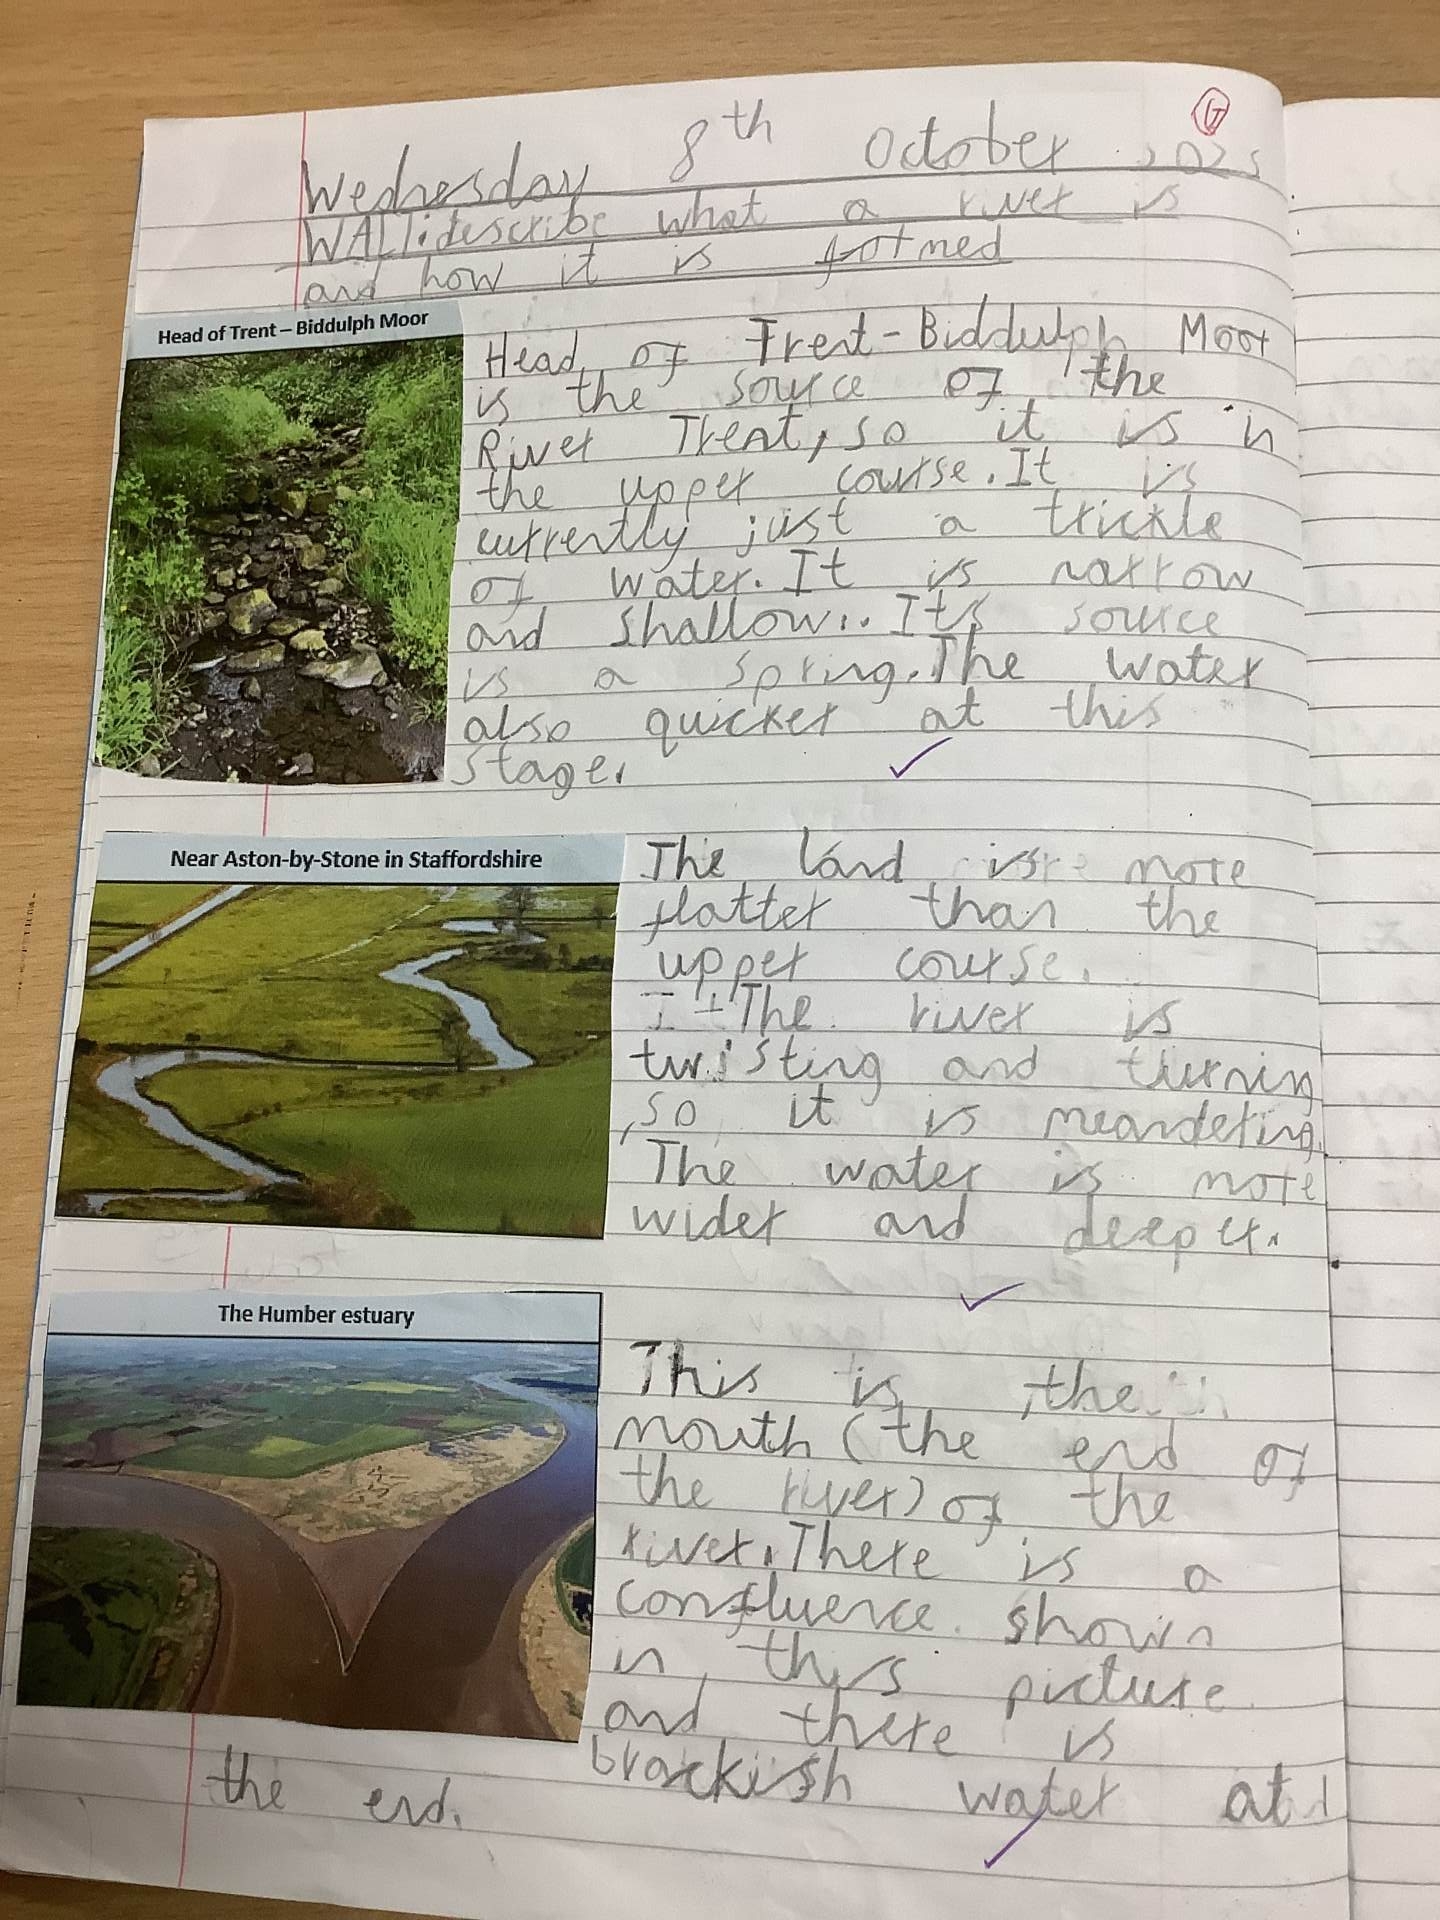 G
Wednesday 8th October 2025
WALT: describe what a river is
and how it is formed
Head of Trent – Biddulph Moor
Head of Trent-Biddulph Moor
is the source of the
River Trent, so it is in
the upper course. It is
currently just a trickle
of water. It is narrow
and shallow.. It's source
is a spring. The water
also quicker at this
stage.
Near Aston-by-Stone in Staffordshire
The land is more
flatter than the
upper course.
It The river is
twisting and turning
, so it is meandering.
The water is more
wider and deeper.
The Humber estuary
This is the
mouth (the end of
the river) of the
river. There is a
confluence shown
in this picture
and there is
brackish water at
the end.